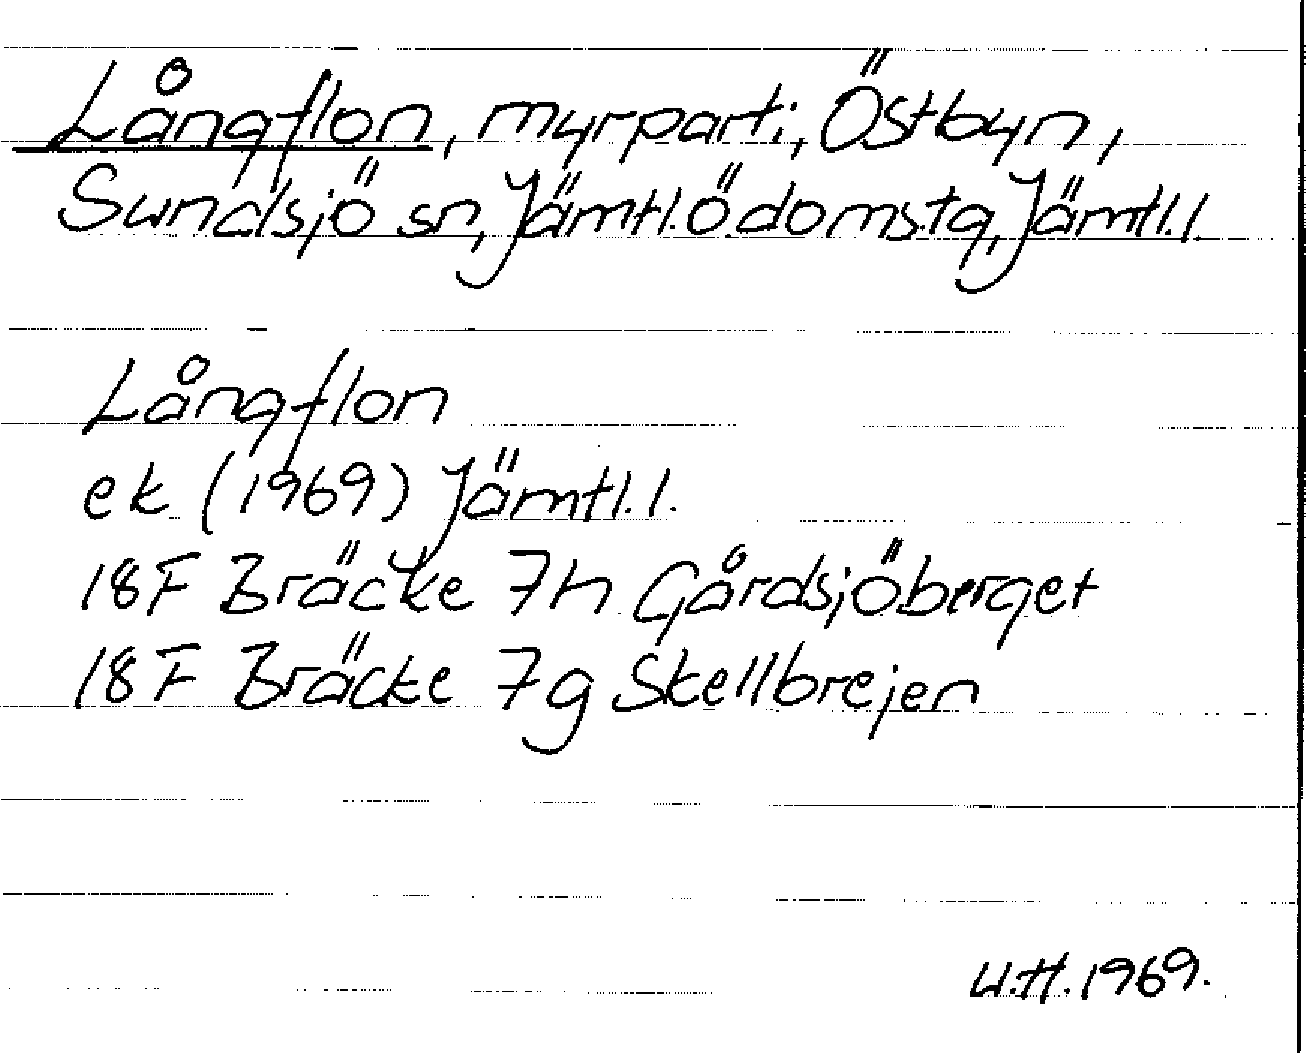 Långflon, myrparti, Östbyn,
Sundsjö sn, Jämtl. ö. domstg, Jämtl.l.
Långflon
ek (1969) Jämtl.l.
18F Bräcke 7h Gårdsjöberget
18F Bräcke 7g Skellbrejen
U.H. 1969.